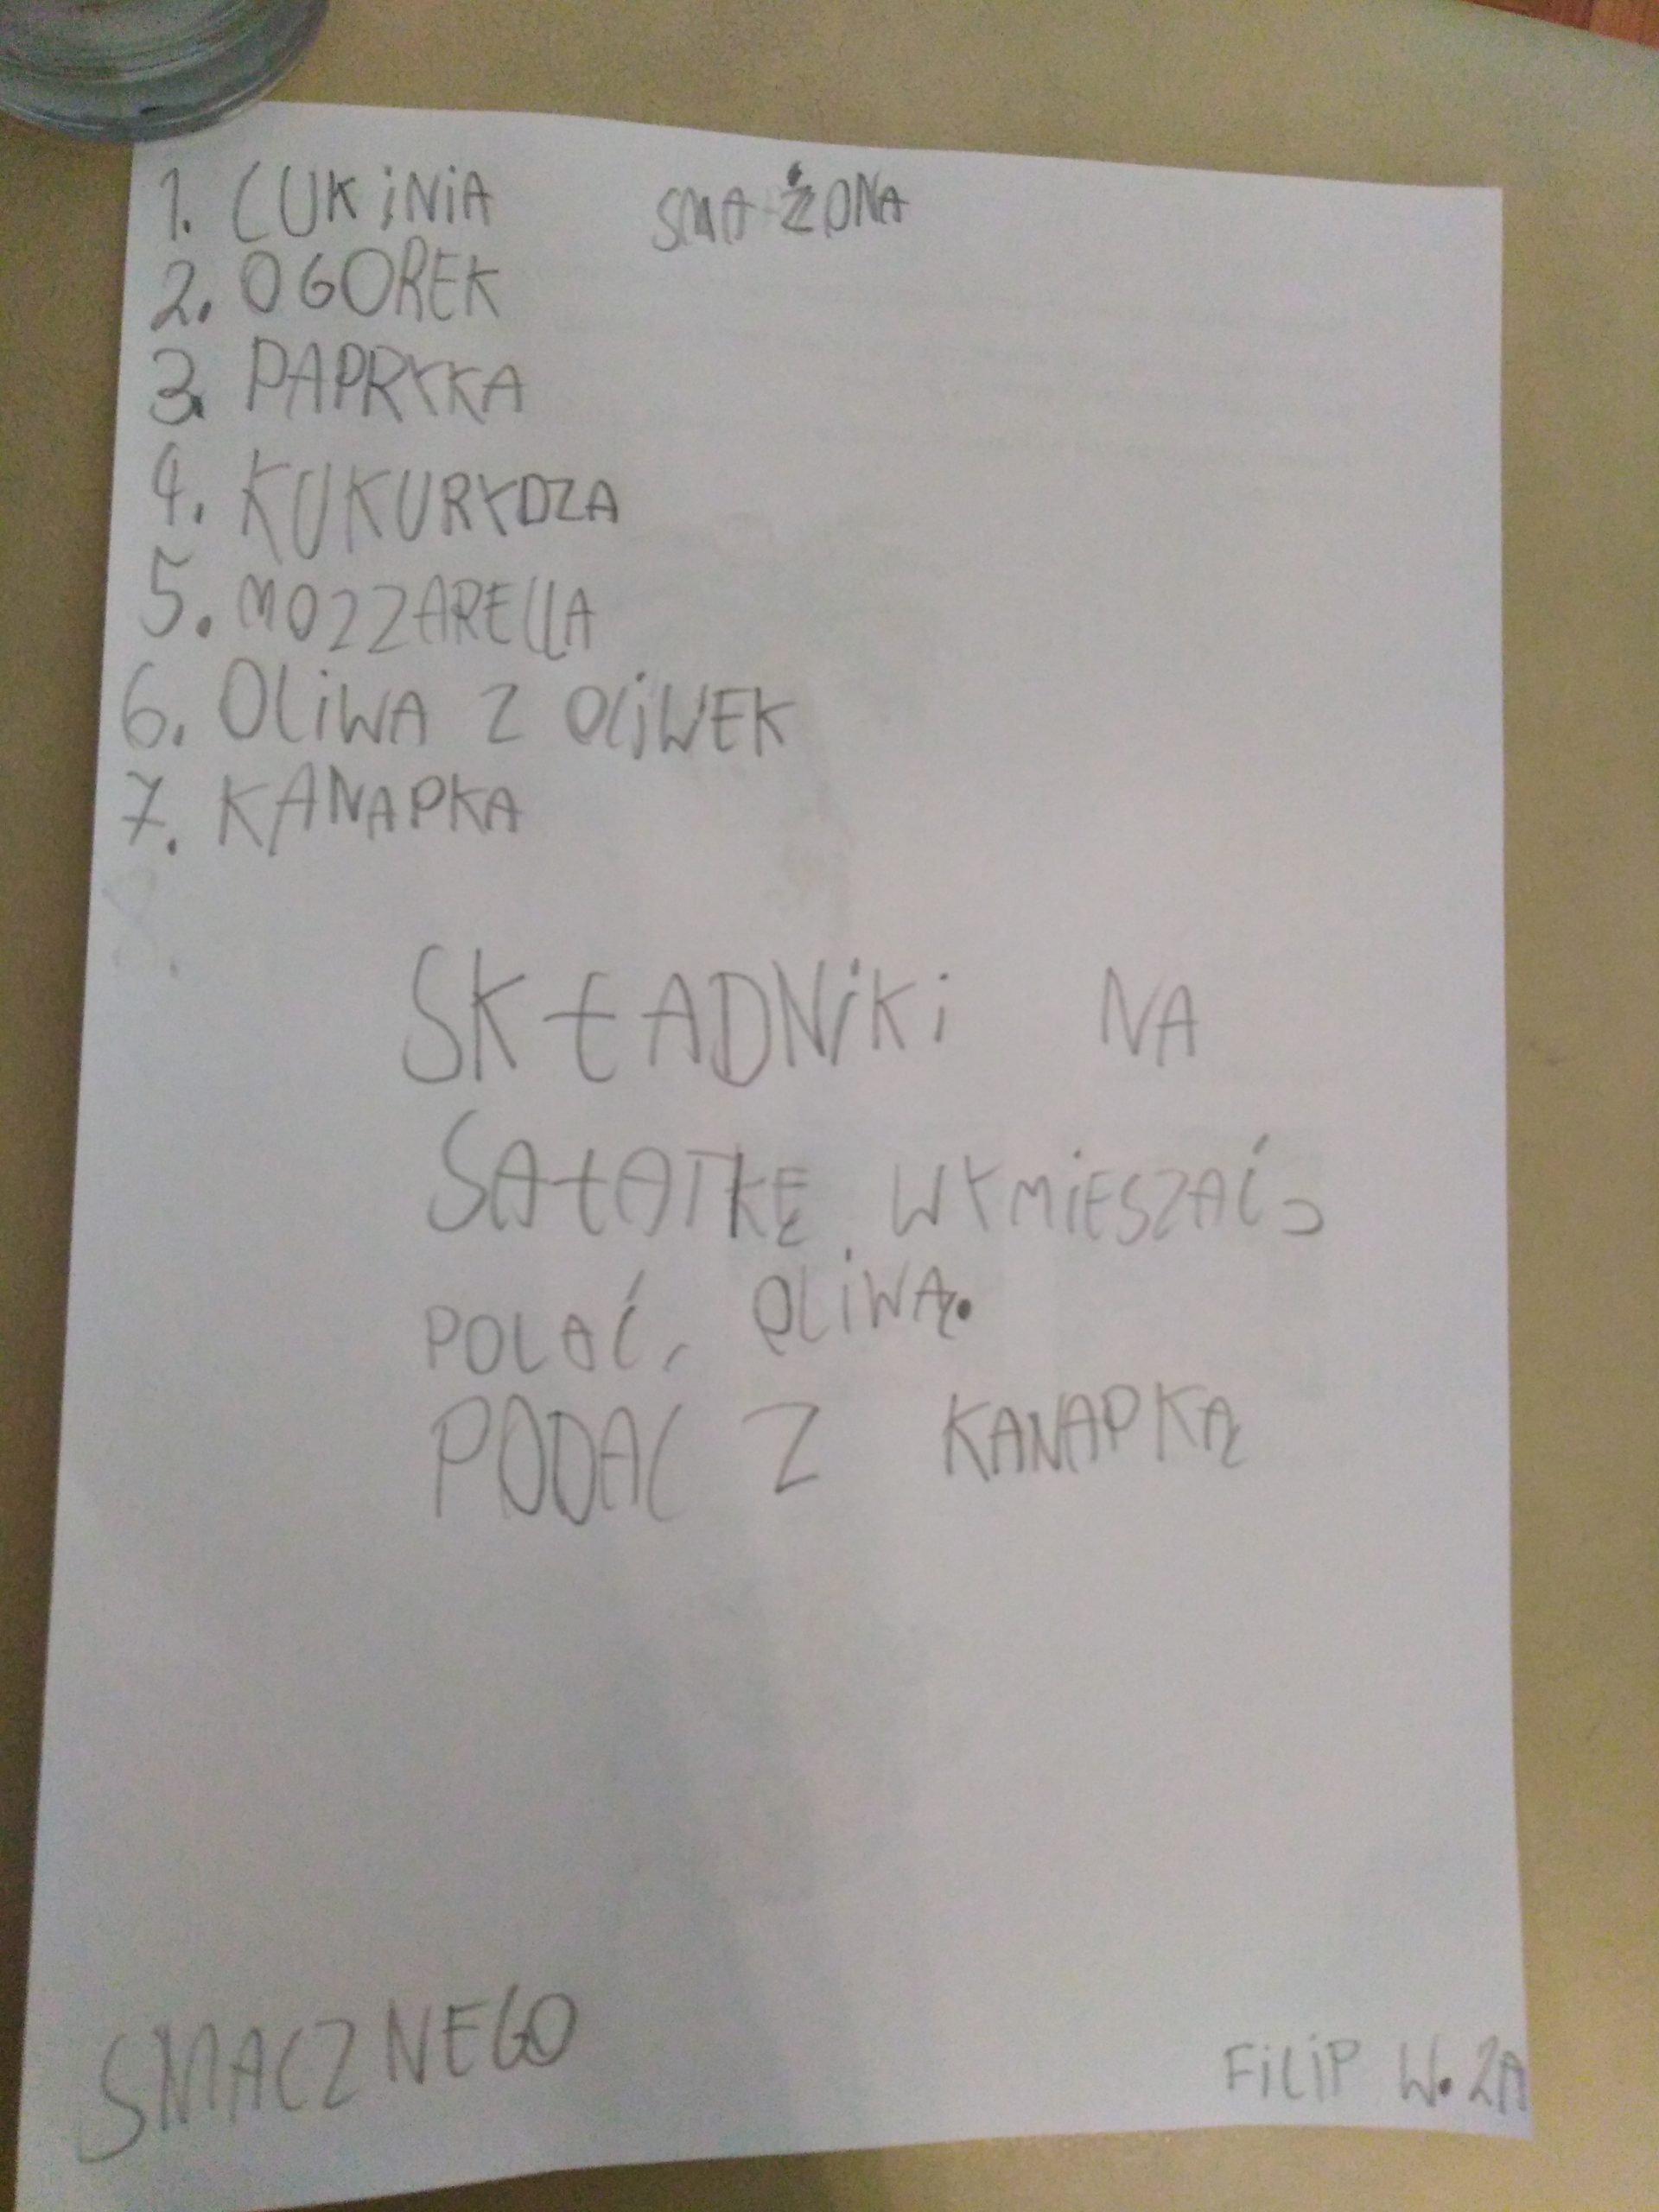 1. CUKiNiA SMAŻONA
2. OGOREK
3. PAPRYKA
4. KUKURYDZA
5. MOZZARELLA
6. OLiWA Z OLiWEK
7. KANAPKA
SKŁADNiKi NA
SAŁATKĘ WYMiESZAĆ,
POLAĆ, OLiWĄ.
PODAC Z KANAPKĄ
SMACZNEGO
FiLiP W. 2A